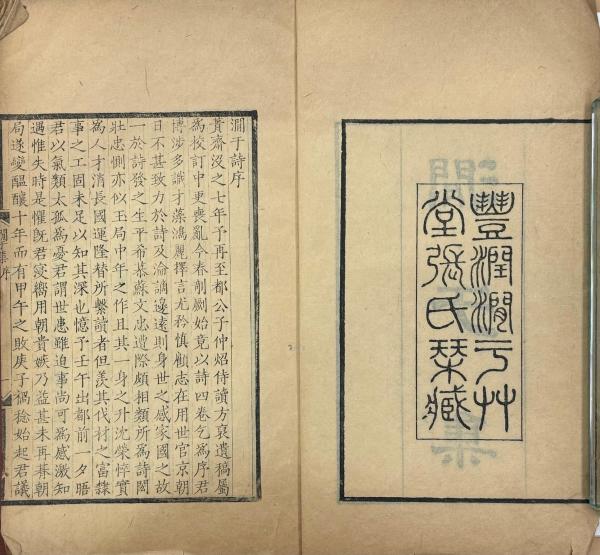 豐潤澗于艸
堂張氏栞臧
澗于詩序
蕢齋沒之七年予再至都公子仲炤侍讀方裒遺稿屬
為校訂中更喪亂今春剞劂始竟以詩四卷乞為序君
博涉多識才藻鴻麗擇言尤矜慎顧志在用世官京朝
日不甚致力於詩及淪謫邊遠則身世之感家國之故
一於詩發之生平希慕蘇文忠遭際頗相類所為詩閎
壯忠惻亦似玉局中年之作且其一身之升沈榮悴實
為人才消長國運隆替所繫讀者但羨其伐材之富隸
事之工固未足以知其深也憶予壬午出都前一夕晤
君以氣類太孤為憂君謂世患雖迫事尚可為感激知
遇惟失時是懼旣君寖嚮用朝貴嫉乃益甚未再朞朝
局遂變醞釀十年而有甲午之敗庚子禍稔始起君議